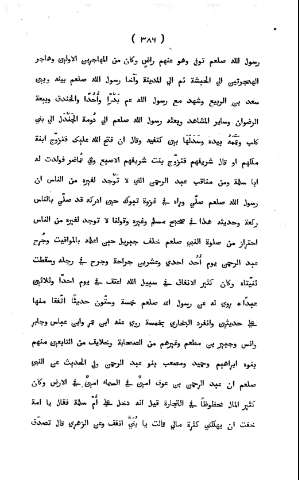 ( ٣٨٦ )
رسول الله صلعم توفى وهو عنهم راض وكان من المهاجرين الاولين وهاجر
الهجرتين الى الحبشة ثم الى المدينة وآخا رسول الله صلعم بينه وبين
سعد بن الربيع وشهد مع رسول الله عم بدرًا وأُحدًا والخندق وبيعة
الرضوان وساير المشاهد وبعثه رسول الله صلعم الى دُومة الجَنْدل الى بنى
كلب وعَمَّمه بيده وسدلها بين كتفيه وقال ان فتح الله عليك فتزوج ابنة
ملكهم او قال شريفهم فتزوّج بنت شريفهم الاصبع وهى تُماضر فولدت له
ابا سلمة ومن مناقب عبد الرحمن التى لا تُوْجد لغيره من الناس ان
رسول الله صلعم صلّى وراءه فى غزوة تبوك حين ادركه قد صلّى بالناس
ركعة وحديثه هذا فى صحيح مسلم وغيره وقولنا لا توجد لغيره من الناس
احتراز من صلوة النبى صلعم خلف جبريل حين اعلمه بالمواقيت وجُرح
عبد الرحمن يوم أُحد احدى وعشرين جراحة وجرح فى رجله وسقطت
ثنيتاه وكان كثير الانفاق فى سبيل الله اعتق فى يوم احدًا وثلاثين
عبدًا، روى له عن رسول الله صلعم خمسة وستّون حديثًا اتّفقا منها
على حديثين وانفرد البخارى بخمسة روى عنه ابن عمر وابن عباس وجابر
وانس وجبير بن مطعم وغيرهم من الصحابة وخلايق من التابعين منهم
بنوه ابراهيم وحميد ومصعب بنو عبد الرحمن وفى الحديث عن النبى
صلعم ان عبد الرحمن بن عوف امينٌ فى السماء امينٌ فى الارض وكان
كثير المال محظوظًا فى التجارة قيل انه دخل على أُمّ سلمة فقال يا امة
خفت ان يهلكنى كثرة مالى قالت يا بُنَىَّ انفق وعن الزهرى قال تصدّق